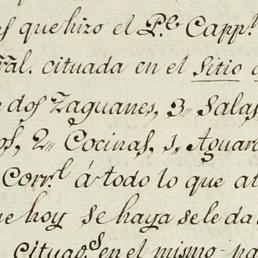 que hizo el P.e Capp.n
ral. cituada en el Sitio
dos Zaguanes, 3,, Salas
os, 2,, Cocinas, 1,, Aguar
Corr.l á todo lo que at
e hoy se haya se le da
cituaos en el mismo pa